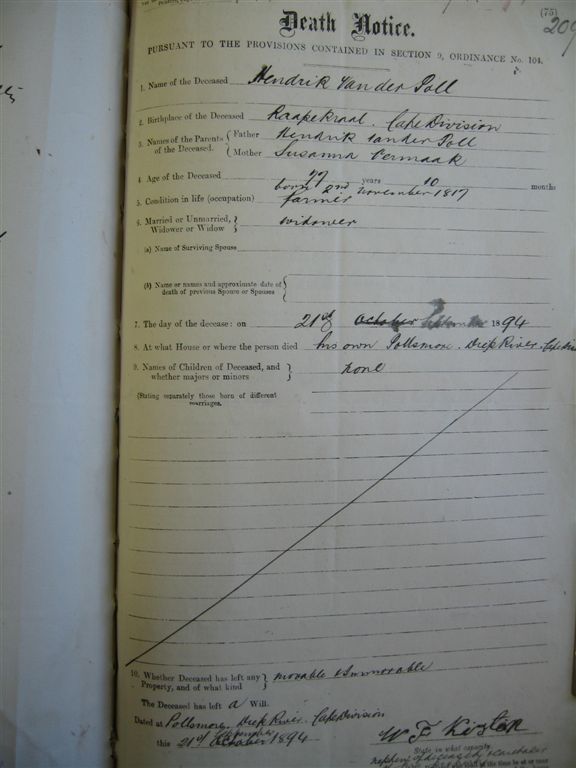 (75)
209
Death Notice.
PURSUANT TO THE PROVISIONS CONTAINED IN SECTION 9, ORDINANCE No. 104.
1. Name of the Deceased Hendrik Van der Poll
2. Birthplace of the Deceased Raapekraal. Cape Division
3. Names of the Parents of the Deceased. { Father Hendrik Van der Poll
{ Mother Susanna Vermaak
4. Age of the Deceased 77 years 10 months
born 2nd November 1817
5. Condition in life (occupation) farmer
6. Married or Unmarried, Widower or Widow } widower
(a) Name of Surviving Spouse
(b) Name or names and approximate date of death of previous Spouse or Spouses {
7. The day of the decease: on 21st October September 1894
8. At what House or where the person died his own Pollsmoor. Diep River. Cape
9. Names of Children of Deceased, and whether majors or minors } none
(Stating separately those born of different marriages.
10. Whether Deceased has left any Property, and of what kind } movable & Immovable
The Deceased has left a Will.
Dated at Pollsmoor, Diep River. Cape Division
this 21st October September 1894
W F
State in what capacity
nephew of deceased